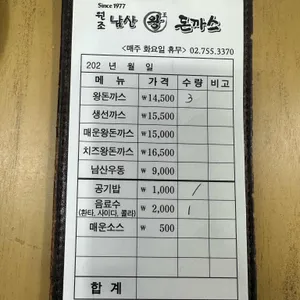 Since 1977
원조 남산 왕 돈까스
<매주 화요일 휴무> 02.755.3370
202 년 월 일
메뉴 가격 수량 비고
왕돈까스 ₩14,500 3
생선까스 ₩15,500
매운왕돈까스 ₩15,000
치즈왕돈까스 ₩16,500
남산우동 ₩9,000
공기밥 ₩1,000 /
음료수 ₩2,000 1
(환타, 사이다, 콜라)
매운소스 ₩500
합계